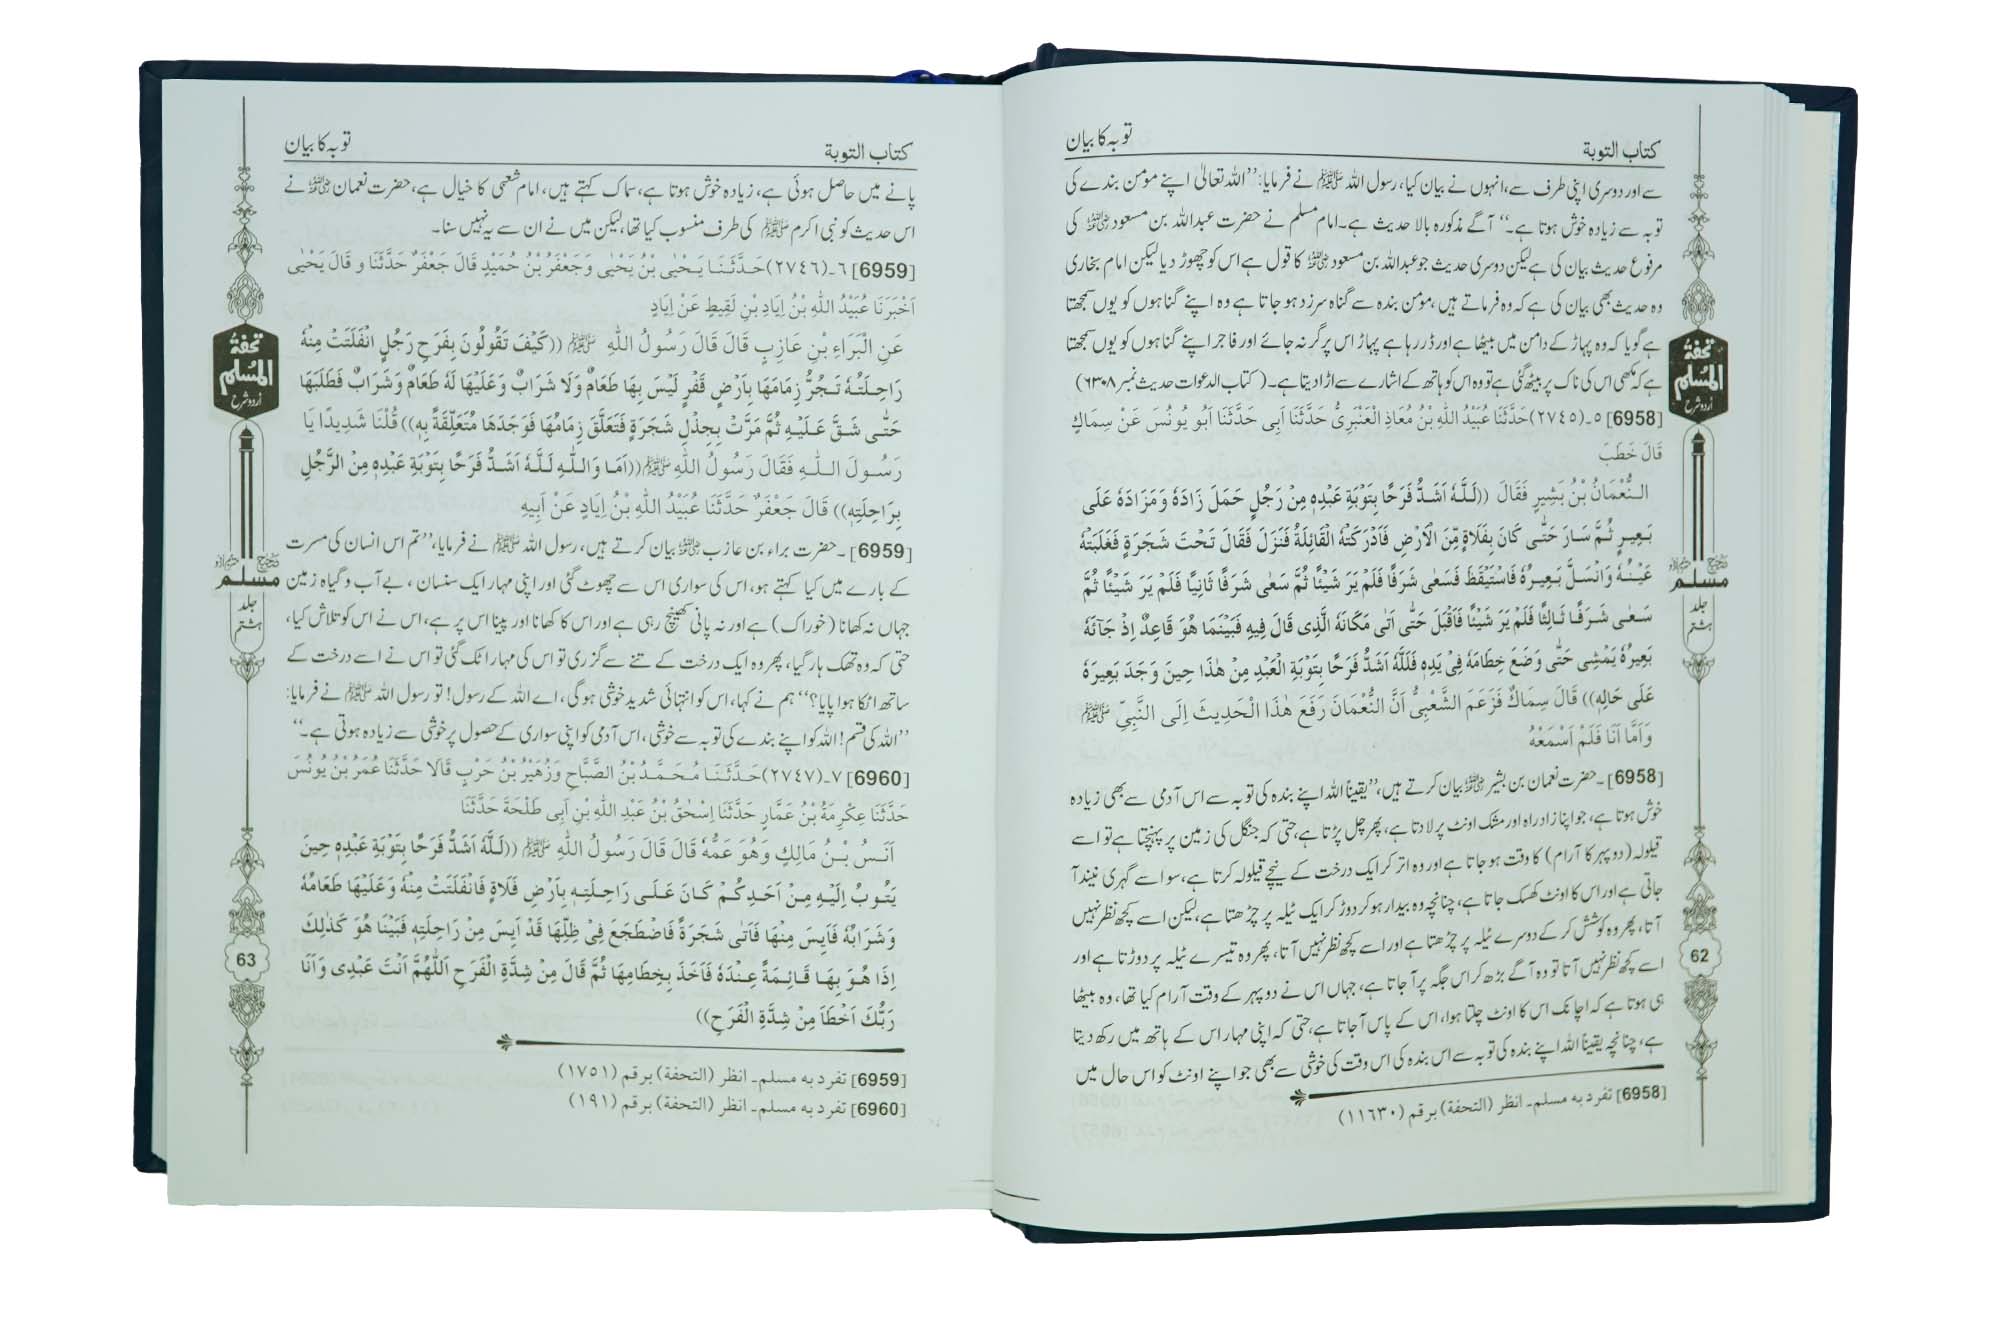 کتاب التوبة
توبہ کا بیان
سے اور دوسری اپنی طرف سے، انہوں نے بیان کیا، رسول اللہ ﷺ نے فرمایا: ’’اللہ تعالیٰ اپنے مومن بندے کی
توبہ سے زیادہ خوش ہوتا ہے۔‘‘ آگے مذکورہ بالا حدیث ہے۔ امام مسلم نے حضرت عبداللہ بن مسعود رضی اللہ عنہ کی
مرفوع حدیث بیان کی ہے لیکن دوسری حدیث جو عبداللہ بن مسعود رضی اللہ عنہ کا قول ہے اس کو چھوڑ دیا لیکن امام بخاری
وہ حدیث بھی بیان کی ہے کہ وہ فرماتے ہیں، مومن بندہ سے گناہ سرزد ہو جاتا ہے وہ اپنے گناہوں کو یوں سمجھتا
ہے گویا کہ وہ پہاڑ کے دامن میں بیٹھا ہے اور ڈر رہا ہے پہاڑ اس پر گر نہ جائے اور فاجر اپنے گناہوں کو یوں سمجھتا
ہے کہ مکھی اس کی ناک پر بیٹھ گئی ہے تو وہ اس کو ہاتھ کے اشارے سے اڑا دیتا ہے۔ (کتاب الدعوات حدیث نمبر ۶۳۰۸)
[6958] ٥۔(٢٧٤٥) حَدَّثَنَا عُبَيْدُ اللّٰهِ بْنُ مُعَاذٍ الْعَنْبَرِىُّ حَدَّثَنَا اَبِى حَدَّثَنَا اَبُو يُونُسَ عَنْ سِمَاكٍ
قَالَ خَطَبَ
النُّعْمَانُ بْنُ بَشِيرٍ فَقَالَ ((لَلّٰهُ اَشَدُّ فَرَحًا بِتَوْبَةِ عَبْدِهٖ مِنْ رَجُلٍ حَمَلَ زَادَهٗ وَمَزَادَهٗ عَلَى
بَعِيرٍ ثُمَّ سَارَ حَتّٰى كَانَ بِفَلَاةٍ مِّنَ الْاَرْضِ فَاَدْرَكَتْهُ الْقَائِلَةُ فَنَزَلَ فَقَالَ تَحْتَ شَجَرَةٍ فَغَلَبَتْهُ
عَيْنُهٗ وَانْسَلَّ بَعِيرُهٗ فَاسْتَيْقَظَ فَسَعٰى شَرَفًا فَلَمْ يَرَ شَيْئًا ثُمَّ سَعٰى شَرَفًا ثَانِيًا فَلَمْ يَرَ شَيْئًا ثُمَّ
سَعٰى شَرَفًا ثَالِثًا فَلَمْ يَرَ شَيْئًا فَاَقْبَلَ حَتّٰى اَتٰى مَكَانَهُ الَّذِى قَالَ فِيهِ فَبَيْنَمَا هُوَ قَاعِدٌ اِذْ جَآئَهٗ
بَعِيرُهٗ يَمْشِى حَتّٰى وَضَعَ خِطَامَهٗ فِىْ يَدِهٖ فَلَلّٰهُ اَشَدُّ فَرَحًا بِتَوْبَةِ الْعَبْدِ مِنْ هٰذَا حِينَ وَجَدَ بَعِيرَهٗ
عَلٰى حَالِهٖ)) قَالَ سِمَاكٌ فَزَعَمَ الشَّعْبِىُّ اَنَّ النُّعْمَانَ رَفَعَ هٰذَا الْحَدِيثَ اِلَى النَّبِىِّ ﷺ
وَاَمَّا اَنَا فَلَمْ اَسْمَعْهُ
[6958]۔ حضرت نعمان بن بشیر رضی اللہ عنہ بیان کرتے ہیں، ’’یقیناً اللہ اپنے بندہ کی توبہ سے اس آدمی سے بھی زیادہ
خوش ہوتا ہے، جو اپنا زادراہ اور مشک اونٹ پر لادتا ہے، پھر چل پڑتا ہے، حتی کہ جنگل کی زمین پر پہنچتا ہے تو اسے
قیلولہ (دوپہر کا آرام) کا وقت ہو جاتا ہے اور وہ اتر کر ایک درخت کے نیچے قیلولہ کرتا ہے، سو اسے گہری نیند آ
جاتی ہے اور اس کا اونٹ کھسک جاتا ہے، چنانچہ وہ بیدار ہو کر دوڑ کر ایک ٹیلہ پر چڑھتا ہے، لیکن اسے کچھ نظر نہیں
آتا، پھر وہ کوشش کر کے دوسرے ٹیلہ پر چڑھتا ہے اور اسے کچھ نظر نہیں آتا، پھر وہ تیسرے ٹیلہ پر دوڑتا ہے اور
اسے کچھ نظر نہیں آتا تو وہ آگے بڑھ کر اس جگہ پر آ جاتا ہے، جہاں اس نے دوپہر کے وقت آرام کیا تھا، وہ بیٹھا
ہی ہوتا ہے کہ اچانک اس کا اونٹ چلتا ہوا، اس کے پاس آ جاتا ہے، حتی کہ اپنی مہار اس کے ہاتھ میں رکھ دیتا
ہے، چنانچہ یقیناً اللہ اپنے بندہ کی توبہ سے اس بندہ کی اس وقت کی خوشی سے بھی جو اپنے اونٹ کو اس حال میں
[6958] تفرد به مسلم۔ انظر (التحفة) برقم (١١٦٣٠)
تحفة
المسلم
اردو شرح
صحیح
مسلم
جلد
ہشتم
62
کتاب التوبة
توبہ کا بیان
پانے میں حاصل ہوئی ہے، زیادہ خوش ہوتا ہے، سماک کہتے ہیں، امام شعبی کا خیال ہے، حضرت نعمان رضی اللہ عنہ نے
اس حدیث کو نبی اکرم ﷺ کی طرف منسوب کیا تھا، لیکن میں نے ان سے یہ نہیں سنا۔
[6959] ٦۔(٢٧٤٦) حَدَّثَنَا يَحْيٰى بْنُ يَحْيٰى وَجَعْفَرُ بْنُ حُمَيْدٍ قَالَ جَعْفَرٌ حَدَّثَنَا وَ قَالَ يَحْيٰى
اَخْبَرَنَا عُبَيْدُ اللّٰهِ بْنُ اِيَادِ بْنِ لَقِيطٍ عَنْ اِيَادٍ
عَنِ الْبَرَاءِ بْنِ عَازِبٍ قَالَ قَالَ رَسُولُ اللّٰهِ ﷺ ((كَيْفَ تَقُولُونَ بِفَرَحِ رَجُلٍ انْفَلَتَتْ مِنْهُ
رَاحِلَتُهٗ تَجُرُّ زِمَامَهَا بِاَرْضٍ قَفْرٍ لَيْسَ بِهَا طَعَامٌ وَلَا شَرَابٌ وَعَلَيْهَا لَهٗ طَعَامٌ وَشَرَابٌ فَطَلَبَهَا
حَتّٰى شَقَّ عَلَيْهِ ثُمَّ مَرَّتْ بِجِذْلِ شَجَرَةٍ فَتَعَلَّقَ زِمَامُهَا فَوَجَدَهَا مُتَعَلِّقَةً بِهٖ)) قُلْنَا شَدِيدًا يَا
رَسُولَ اللّٰهِ فَقَالَ رَسُولُ اللّٰهِ ﷺ ((اَمَا وَاللّٰهِ لَلّٰهُ اَشَدُّ فَرَحًا بِتَوْبَةِ عَبْدِهٖ مِنَ الرَّجُلِ
بِرَاحِلَتِهٖ)) قَالَ جَعْفَرٌ حَدَّثَنَا عُبَيْدُ اللّٰهِ بْنُ اِيَادٍ عَنْ اَبِيهِ
[6959]۔ حضرت براء بن عازب رضی اللہ عنہ بیان کرتے ہیں، رسول اللہ ﷺ نے فرمایا، ’’تم اس انسان کی مسرت
کے بارے میں کیا کہتے ہو، اس کی سواری اس سے چھوٹ گئی اور اپنی مہار ایک سنسان، بے آب و گیاہ زمین
جہاں نہ کھانا (خوراک) ہے اور نہ پانی کھینچ رہی ہے اور اس کا کھانا اور پینا اس پر ہے، اس نے اس کو تلاش کیا،
حتی کہ وہ تھک ہار گیا، پھر وہ ایک درخت کے تنے سے گزری تو اس کی مہار اٹک گئی تو اس نے اسے درخت کے
ساتھ اٹکا ہوا پایا؟‘‘ ہم نے کہا، اس کو انتہائی شدید خوشی ہوگی، اے اللہ کے رسول! تو رسول اللہ ﷺ نے فرمایا:
’’اللہ کی قسم! اللہ کو اپنے بندے کی توبہ سے خوشی، اس آدمی کو اپنی سواری کے حصول پر خوشی سے زیادہ ہوتی ہے۔‘‘
[6960] ٧۔(٢٧٤٧) حَدَّثَنَا مُحَمَّدُ بْنُ الصَّبَّاحِ وَزُهَيْرُ بْنُ حَرْبٍ قَالَا حَدَّثَنَا عُمَرُ بْنُ يُونُسَ
حَدَّثَنَا عِكْرِمَةُ بْنُ عَمَّارٍ حَدَّثَنَا اِسْحٰقُ بْنُ عَبْدِ اللّٰهِ بْنِ اَبِى طَلْحَةَ حَدَّثَنَا
اَنَسُ بْنُ مَالِكٍ وَهُوَ عَمُّهٗ قَالَ قَالَ رَسُولُ اللّٰهِ ﷺ ((لَلّٰهُ اَشَدُّ فَرَحًا بِتَوْبَةِ عَبْدِهٖ حِينَ
يَتُوبُ اِلَيْهِ مِنْ اَحَدِكُمْ كَانَ عَلٰى رَاحِلَتِهٖ بِاَرْضِ فَلَاةٍ فَانْفَلَتَتْ مِنْهُ وَعَلَيْهَا طَعَامُهٗ
وَشَرَابُهٗ فَاَيِسَ مِنْهَا فَاَتٰى شَجَرَةً فَاضْطَجَعَ فِىْ ظِلِّهَا قَدْ اَيِسَ مِنْ رَاحِلَتِهٖ فَبَيْنَا هُوَ كَذٰلِكَ
اِذَا هُوَ بِهَا قَائِمَةً عِنْدَهٗ فَاَخَذَ بِخِطَامِهَا ثُمَّ قَالَ مِنْ شِدَّةِ الْفَرَحِ اَللّٰهُمَّ اَنْتَ عَبْدِى وَاَنَا
رَبُّكَ اَخْطَاَ مِنْ شِدَّةِ الْفَرَحِ))
[6959] تفرد به مسلم۔ انظر (التحفة) برقم (١٧٥١)
[6960] تفرد به مسلم۔ انظر (التحفة) برقم (١٩١)
تحفة
المسلم
اردو شرح
صحیح
مسلم
جلد
ہشتم
63